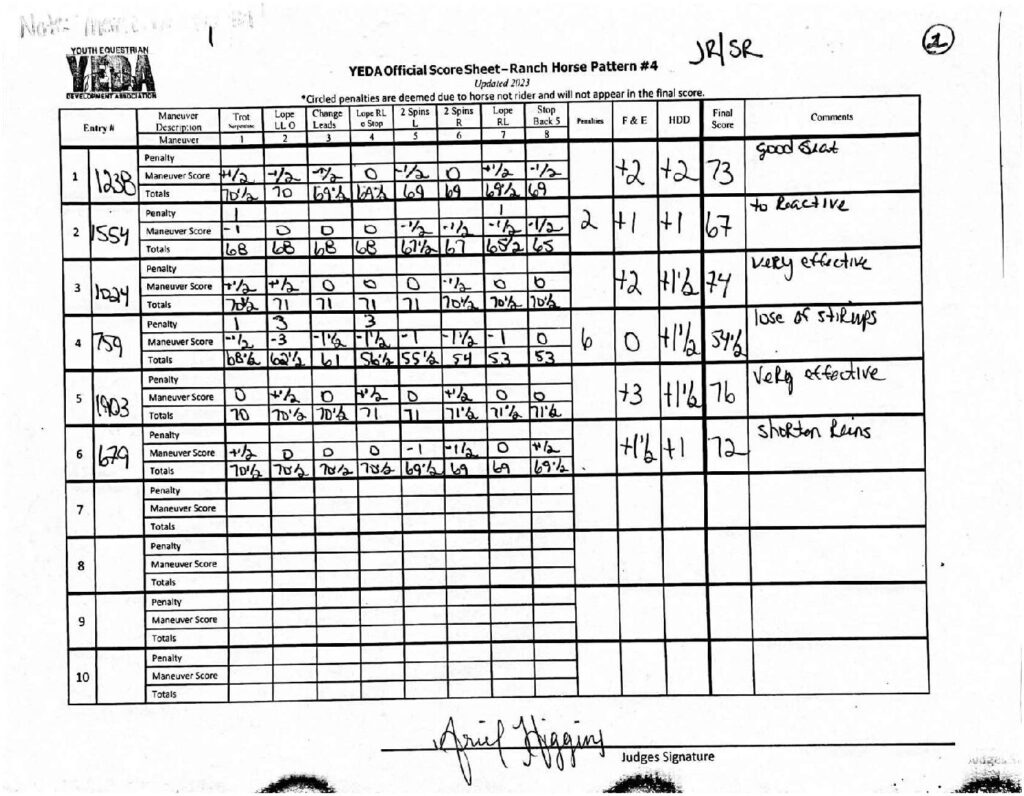 1
JR/SR
1
YOUTH EQUESTRIAN
YEDA
DEVELOPMENT ASSOCIATION
YEDA Official Score Sheet – Ranch Horse Pattern #4
Updated 2023
*Circled penalties are deemed due to horse not rider and will not appear in the final score.
Entry # Maneuver Description Trot Lope LL O Change Leads Lope RL Stop 2 Spins L 2 Spins R Lope RL Stop Back 5 Penalties F & E HDD Final Score Comments
Maneuver 1 2 3 4 5 6 7 8
1 1238 +2 +2 73 good Seat
Penalty
Maneuver Score +1/2 -1/2 -1/2 0 -1/2 0 +1/2 -1/2
Totals 70 1/2 70 69 1/2 69 1/2 69 69 69 1/2 69
2 1554 2 +1 +1 67 to Reactive
Penalty 1 1
Maneuver Score -1 0 0 0 -1/2 -1/2 -1/2 -1/2
Totals 68 68 68 68 67 1/2 67 65 1/2 65
3 1024 +2 +1 1/2 74 very effective
Penalty
Maneuver Score +1/2 +1/2 0 0 0 -1/2 0 0
Totals 70 1/2 71 71 71 71 70 1/2 70 1/2 70 1/2
4 759 6 0 +1 1/2 54 1/2 lose of stirups
Penalty 1 3 3
Maneuver Score -1/2 -3 -1 1/2 -1 1/2 -1 -1 1/2 -1 0
Totals 68 1/2 62 1/2 61 56 1/2 55 1/2 54 53 53
5 1903 +3 +1 1/2 76 Very effective
Penalty
Maneuver Score 0 +1/2 0 +1/2 0 +1/2 0 0
Totals 70 70 1/2 70 1/2 71 71 71 1/2 71 1/2 71 1/2
6 679 +1 1/2 +1 72 Shorton Reins
Penalty
Maneuver Score +1/2 0 0 0 -1 -1/2 0 +1/2
Totals 70 1/2 70 1/2 70 1/2 70 1/2 69 1/2 69 69 69 1/2
7
Penalty
Maneuver Score
Totals
8
Penalty
Maneuver Score
Totals
9
Penalty
Maneuver Score
Totals
10
Penalty
Maneuver Score
Totals
Ariel Higgins
Judges Signature